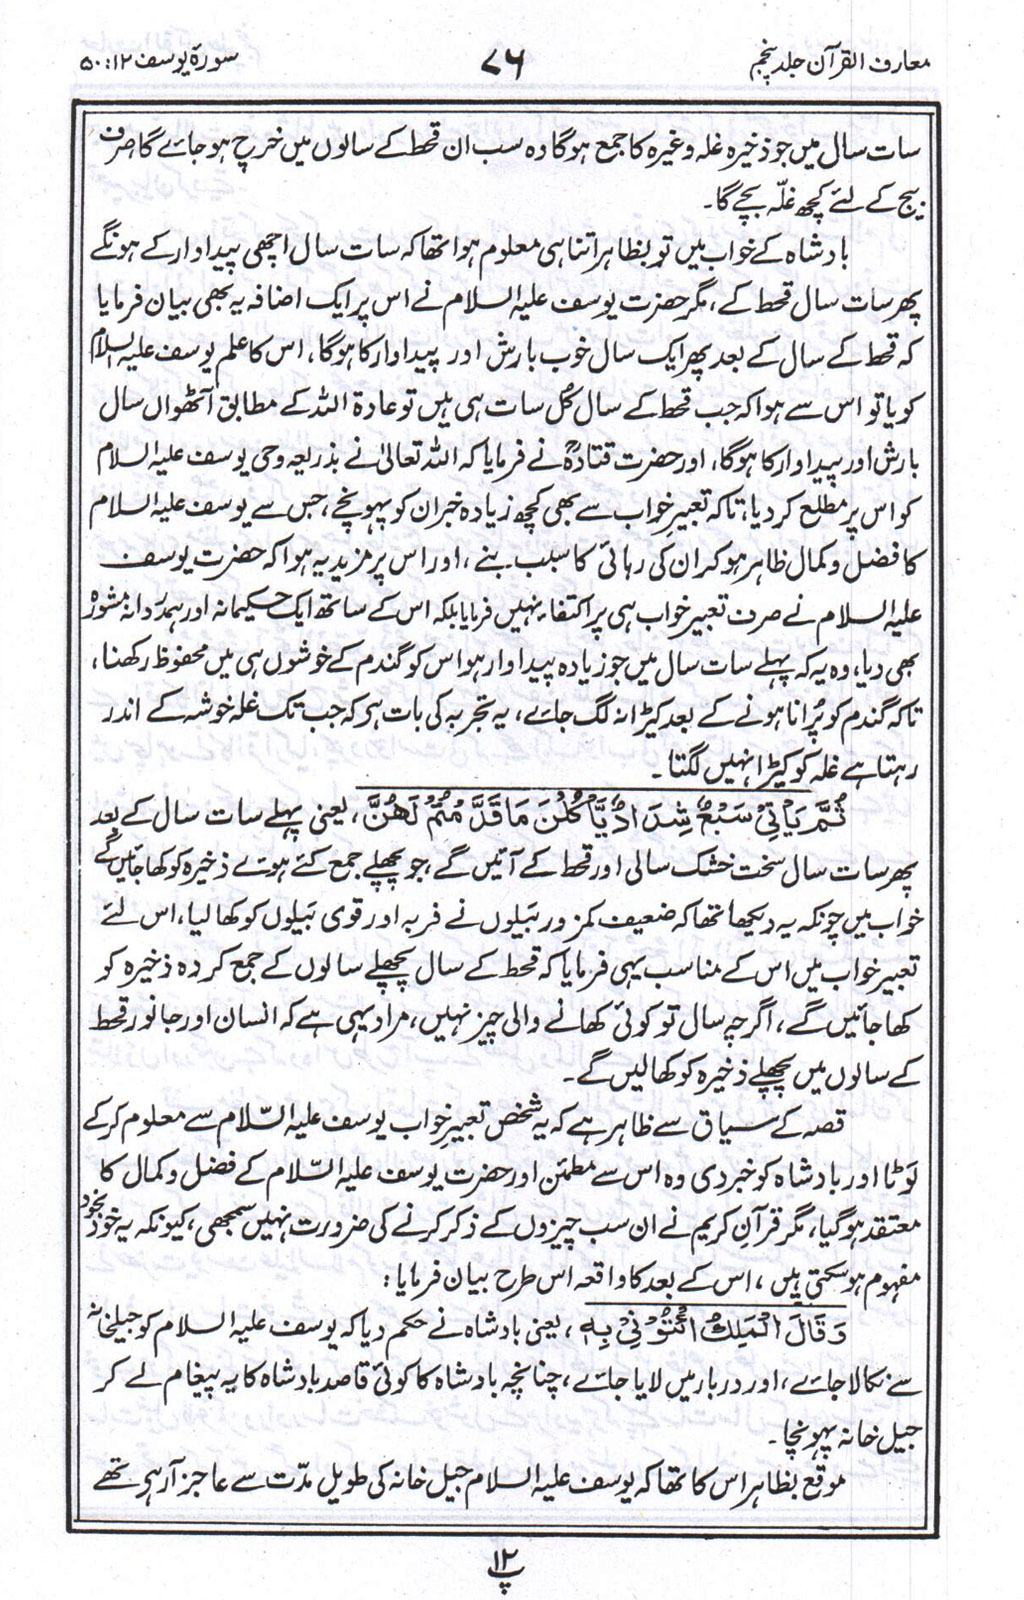 معارف القرآن جلد پنجم
۷۶
سورۃ یوسف ۱۲: ۵۰
سات سال میں جو ذخیرہ غلہ وغیرہ کا جمع ہوگا وہ سب ان قحط کے سالوں میں خرچ ہو جائے گا صرف
بیج کے لئے کچھ غلّہ بچے گا۔
بادشاہ کے خواب میں تو بظاہر اتنا ہی معلوم ہوا تھا کہ سات سال اچھی پیداوار کے ہونگے
پھر سات سال قحط کے، مگر حضرت یوسف علیہ السلام نے اس پر ایک اضافہ یہ بھی بیان فرمایا
کہ قحط کے سال کے بعد پھر ایک سال خوب بارش اور پیداوار کا ہوگا، اس کا علم یوسف علیہ السلام
کو یا تو اس سے ہوا کہ جب قحط کے سال کُل سات ہی ہیں تو عادۃ اللہ کے مطابق آٹھواں سال
بارش اور پیداوار کا ہوگا، اور حضرت قتادہؒ نے فرمایا کہ اللہ تعالیٰ نے بذریعہ وحی یوسف علیہ السلام
کو اس پر مطلع کر دیا، تاکہ تعبیرِ خواب سے بھی کچھ زیادہ خبر ان کو پہونچے، جس سے یوسف علیہ السلام
کا فضل و کمال ظاہر ہو کر ان کی رہائی کا سبب بنے، اور اس پر مزید یہ ہوا کہ حضرت یوسف
علیہ السلام نے صرف تعبیر خواب ہی پر اکتفاء نہیں فرمایا بلکہ اس کے ساتھ ایک حکیمانہ اور ہمدردانہ مشورہ
بھی دیا، وہ یہ کہ پہلے سات سال میں جو زیادہ پیداوار ہو اس کو گندم کے خوشوں ہی میں محفوظ رکھنا،
تاکہ گندم کو پُرانا ہونے کے بعد کیڑا نہ لگ جائے، یہ تجربہ کی بات ہی کہ جب تک غلہ خوشہ کے اندر
رہتا ہے غلہ کو کیڑا نہیں لگتا۔
ثُمَّ يَاْتِيْ سَبْعٌ شِدَادٌ يَّاْكُلْنَ مَا قَدَّمْتُمْ لَهُنَّ، یعنی پہلے سات سال کے بعد
پھر سات سال سخت خشک سالی اور قحط کے آئیں گے، جو پچھلے جمع کئے ہوئے ذخیرہ کو کھا جائیں گے
خواب میں چونکہ یہ دیکھا تھا کہ ضعیف کمزور بَیلوں نے فربہ اور قوی بَیلوں کو کھا لیا، اس لئے
تعبیر خواب میں اس کے مناسب یہی فرمایا کہ قحط کے سال پچھلے سالوں کے جمع کردہ ذخیرہ کو
کھا جائیں گے، اگرچہ سال تو کوئی کھانے والی چیز نہیں، مراد یہی ہے کہ انسان اور جانور قحط
کے سالوں میں پچھلے ذخیرہ کو کھالیں گے۔
قصہ کے سیاق سے ظاہر ہے کہ یہ شخص تعبیرِ خواب یوسف علیہ السّلام سے معلوم کرکے
لَوٹا اور بادشاہ کو خبر دی وہ اس سے مطمئن اور حضرت یوسف علیہ السّلام کے فضل و کمال کا
معتقد ہوگیا، مگر قرآنِ کریم نے ان سب چیزوں کے ذکر کرنے کی ضرورت نہیں سمجھی، کیونکہ یہ خود بخود
مفہوم ہو سکتی ہیں، اس کے بعد کا واقعہ اس طرح بیان فرمایا:
وَقَالَ الْمَلِكُ ائْتُوْنِيْ بِهٖ، یعنی بادشاہ نے حکم دیا کہ یوسف علیہ السلام کو جیلخانہ
سے نکالا جائے، اور دربار میں لایا جائے، چنانچہ بادشاہ کا کوئی قاصد بادشاہ کا یہ پیغام لے کر
جیل خانہ پہونچا۔
موقع بظاہر اس کا تھا کہ یوسف علیہ السلام جیل خانہ کی طویل مدّت سے عاجز آرہی تھے
پ۱۲